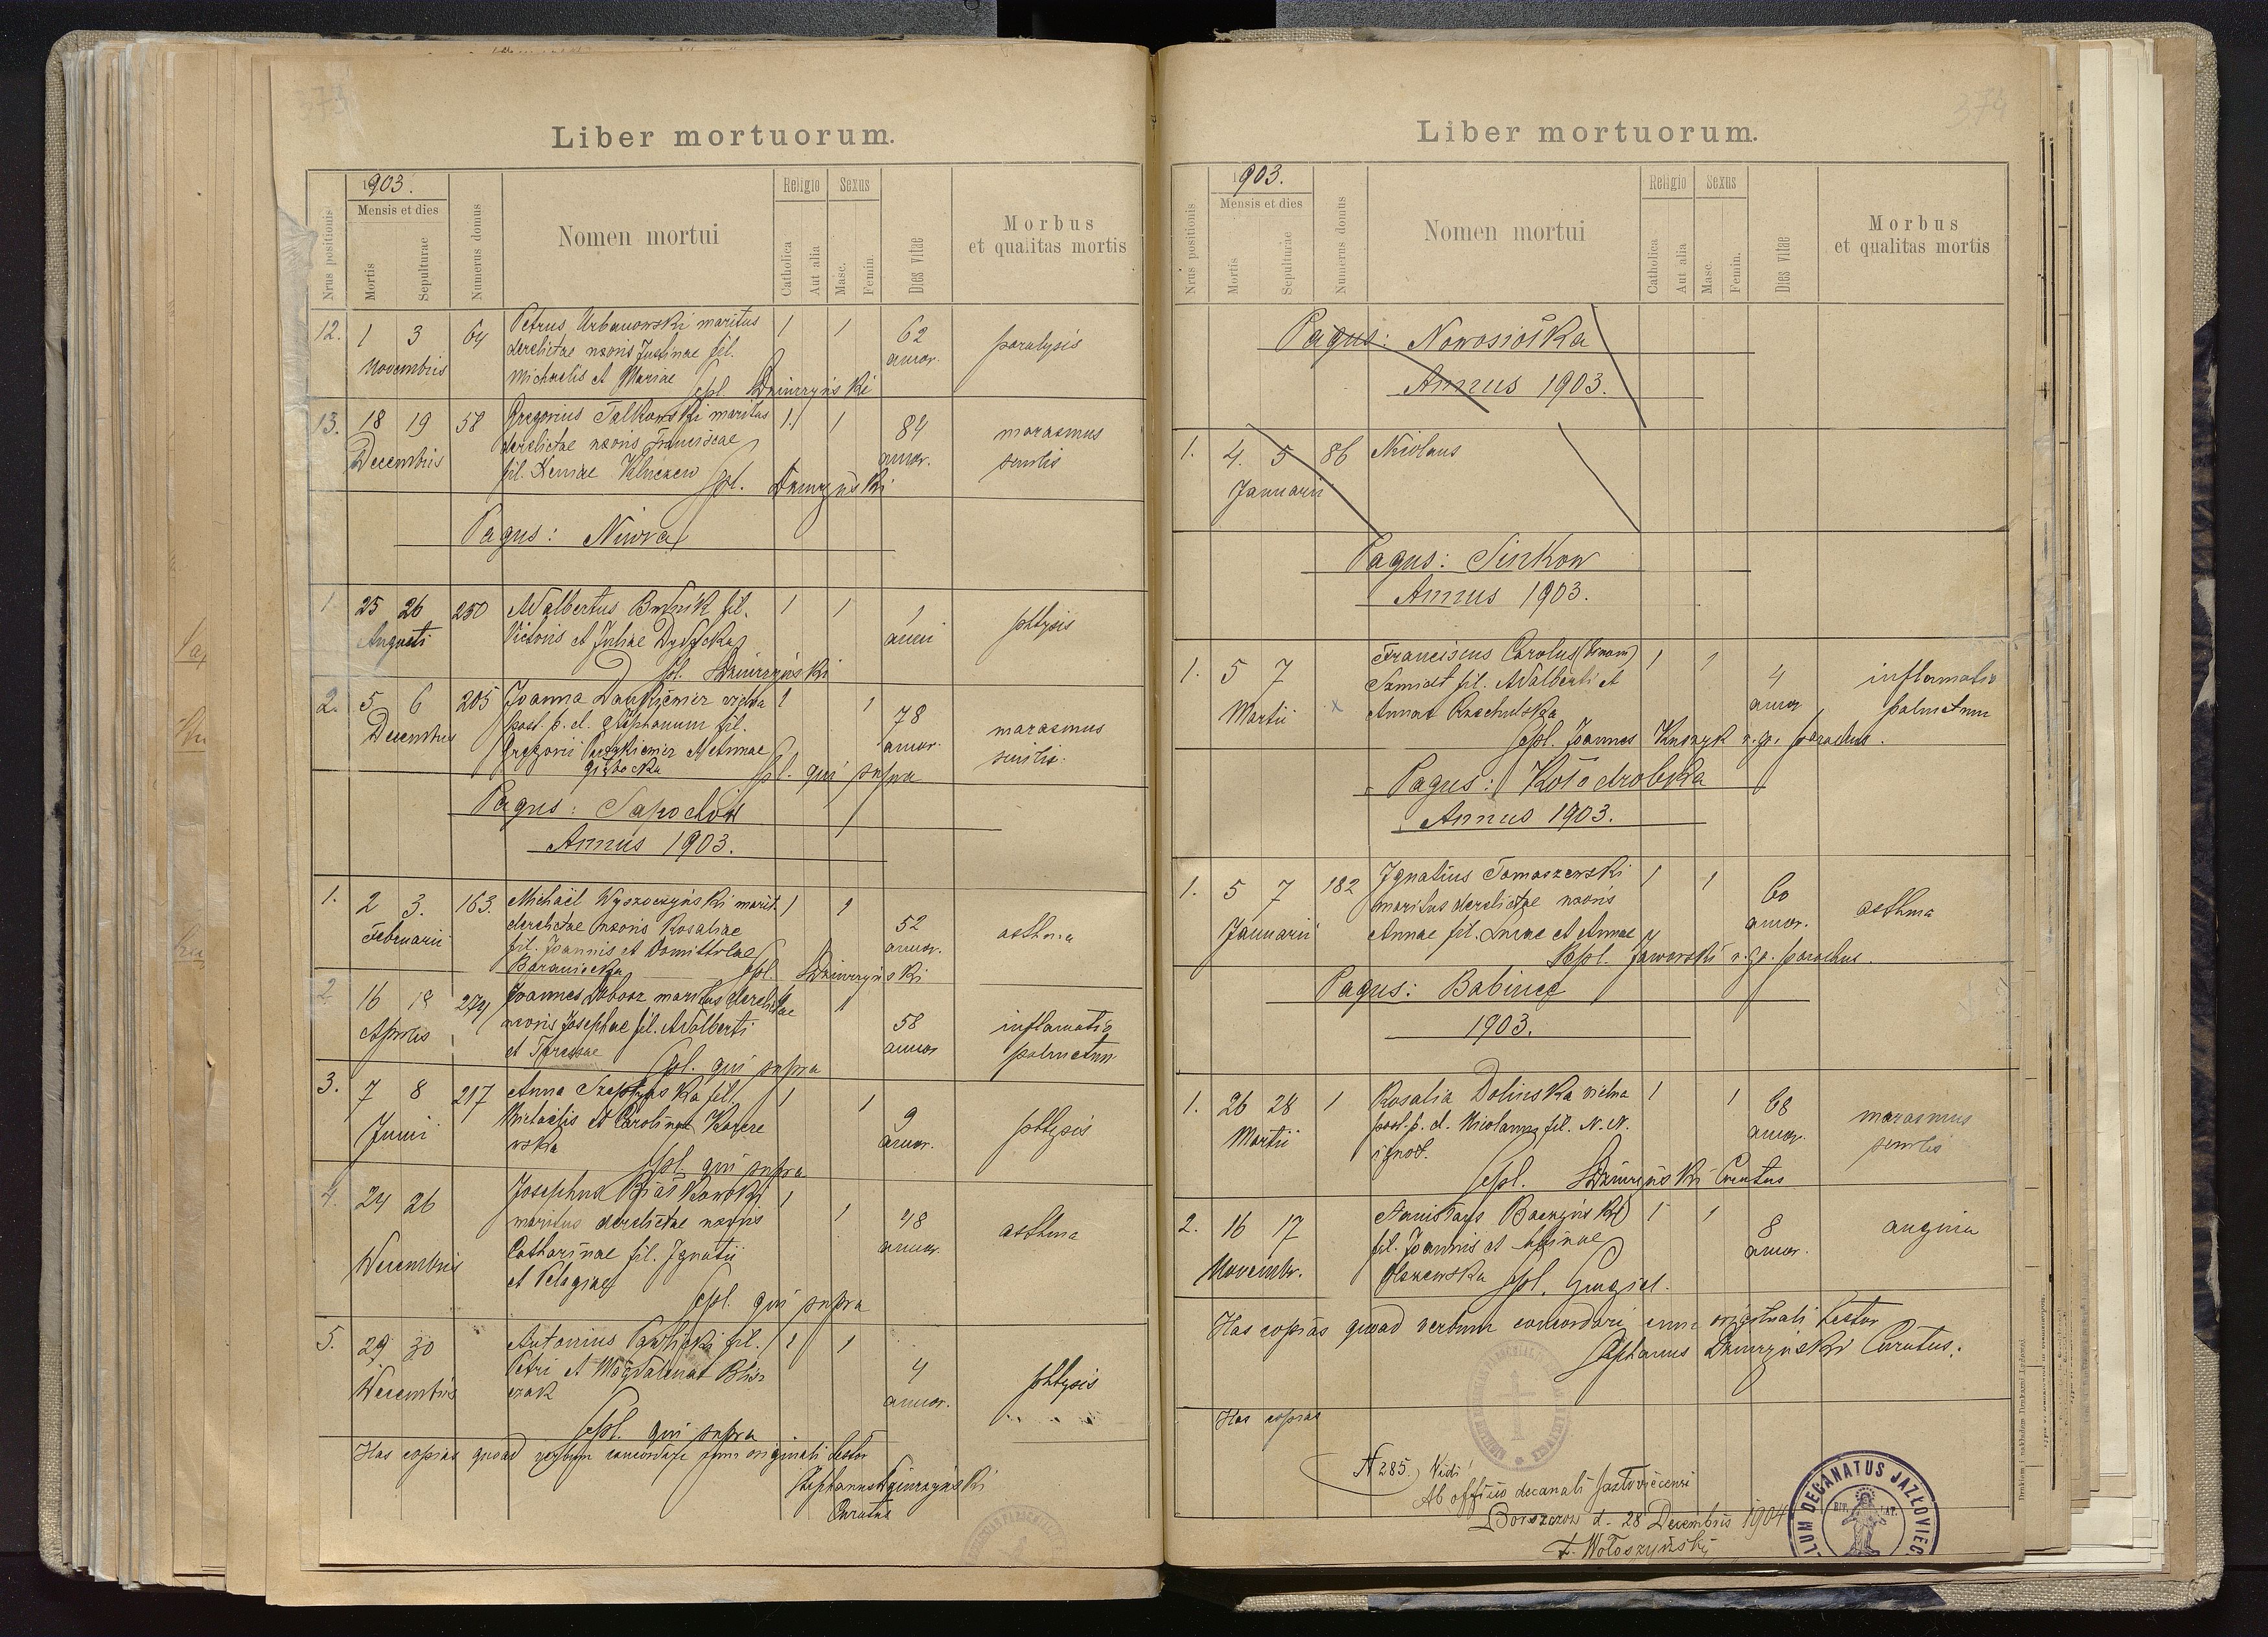 373
Liber mortuorum.
1903.
Mensis et dies
Religio
Sexus
Nrus positionis
Mortis
Sepulturae
Numerus domus
Nomen mortui
Catholica
Aut alia
Masc.
Femin.
Dies vitae
Morbus
et qualitas mortis
12. 1 3 64 Petrus Urbanowski maritus 1 1 62 paralysis
Novembris derelictae uxoris Justinae fil. annor.
Michaelis et Mariae
Sepl. Dziurzyński
13. 18 19 58 Gregorius Falkowski maritus 1 1 84 marasmus
Decembris derelictae uxoris Franciscae annor. senilis
fil.
Sepl. Dziurzyński
Pagus: Niwra
1 25 26 250 Adalbertus fil. 1 1 1 phtysis
Augusti Victoris et Juliae Dydycka anni
Sepl. Dziurzyński
2. 5 6 205 Joanna Dankiewicz vidua 1 1 78 marasmus
Decembris post. p. d. Stephanum fil. annor. senilis.
Gregorii et Annae
Głębocka Sepl. qui supra
Pagus: Sapochów
Annus 1903.
1. 2 3. 163. Michaël Wyszoczyński marit. 1 1 52 asthma
Februarii derelictae uxoris Rosaliae annor.
fil. Joannis et Domittelae
Baraniecka Sepl. Dziurzyński
2 16 18 274 Joannes Dobosz maritus derelictae 1 58 inflamatio
Aprilis uxoris Josephae fil. Adalberti annor pulmonum
et Teressae Sepl. qui supra
3. 7 8 217 Anna fil. 1 1 9 phtysis
Junii Michaëlis et Carolinae annor.
wska
Sepl. qui supra
4. 24 26 Josephus Białkowski 1 1 48 asthma
Decembris maritus derelictae uxoris annor.
Catharinae fil. Ignatii
et Pelagiae
Sepl. qui supra
5. 29 30 Antonius Pawlicki fil. 1 1 4 phtysis
Decembris Petri et Magdalenae Blisz annor.
czak
Sepl. qui supra
Has copias quoad verbum concordare cum originali testor
Stephanus Dziurzyński
Curatus
374
Liber mortuorum.
1903.
Mensis et dies
Religio
Sexus
Nrus positionis
Mortis
Sepulturae
Numerus domus
Nomen mortui
Catholica
Aut alia
Masc.
Femin.
Dies vitae
Morbus
et qualitas mortis
Pagus: Nowosiółka
Annus 1903.
1. 4. 5 86 Nicolaus
Januarii
Pagus: Sinkow
Annus 1903.
1. 5 7 Franciscus Carolus (binom) 1 1 4 inflamatio
Martii x Szmidt fil. Adalberti et annor pulmonum
Annae
Sepl. Joannes r. g. parochus.
Pagus: Kołodrobka
Annus 1903.
1. 5 7 182 Ignatius Tomaszewski 1 1 60 asthma
Januarii maritus derelictae uxoris annor.
Annae fil. Lucae et Annae
Sepl. Jaworski r. g. parochus.
Pagus: Babince
1903.
1. 26 28 1 Rosalia Dolinska vidua 1 1 68 marasmus
Martii post. p. d. Nicolaum fil. N. N. annor. senilis
ignot.
Sepl. Dziurzyński Curatus
2. 16 17 Stanislaus Baczyński 1 1 8 angina
Novembr. fil. Joannis et annor.
Olszewska Sepl.
Has copias quoad verbum concordari cum originali testor
Stephanus Dziurzyński Curatus.
Has copias
N 285.) Vidi!
Ab officio decanali Jazłoviecensi
Borszczow d. 28 Decembris 1904
F. Wołoszyński
DECANATUS JAZŁOVIEC